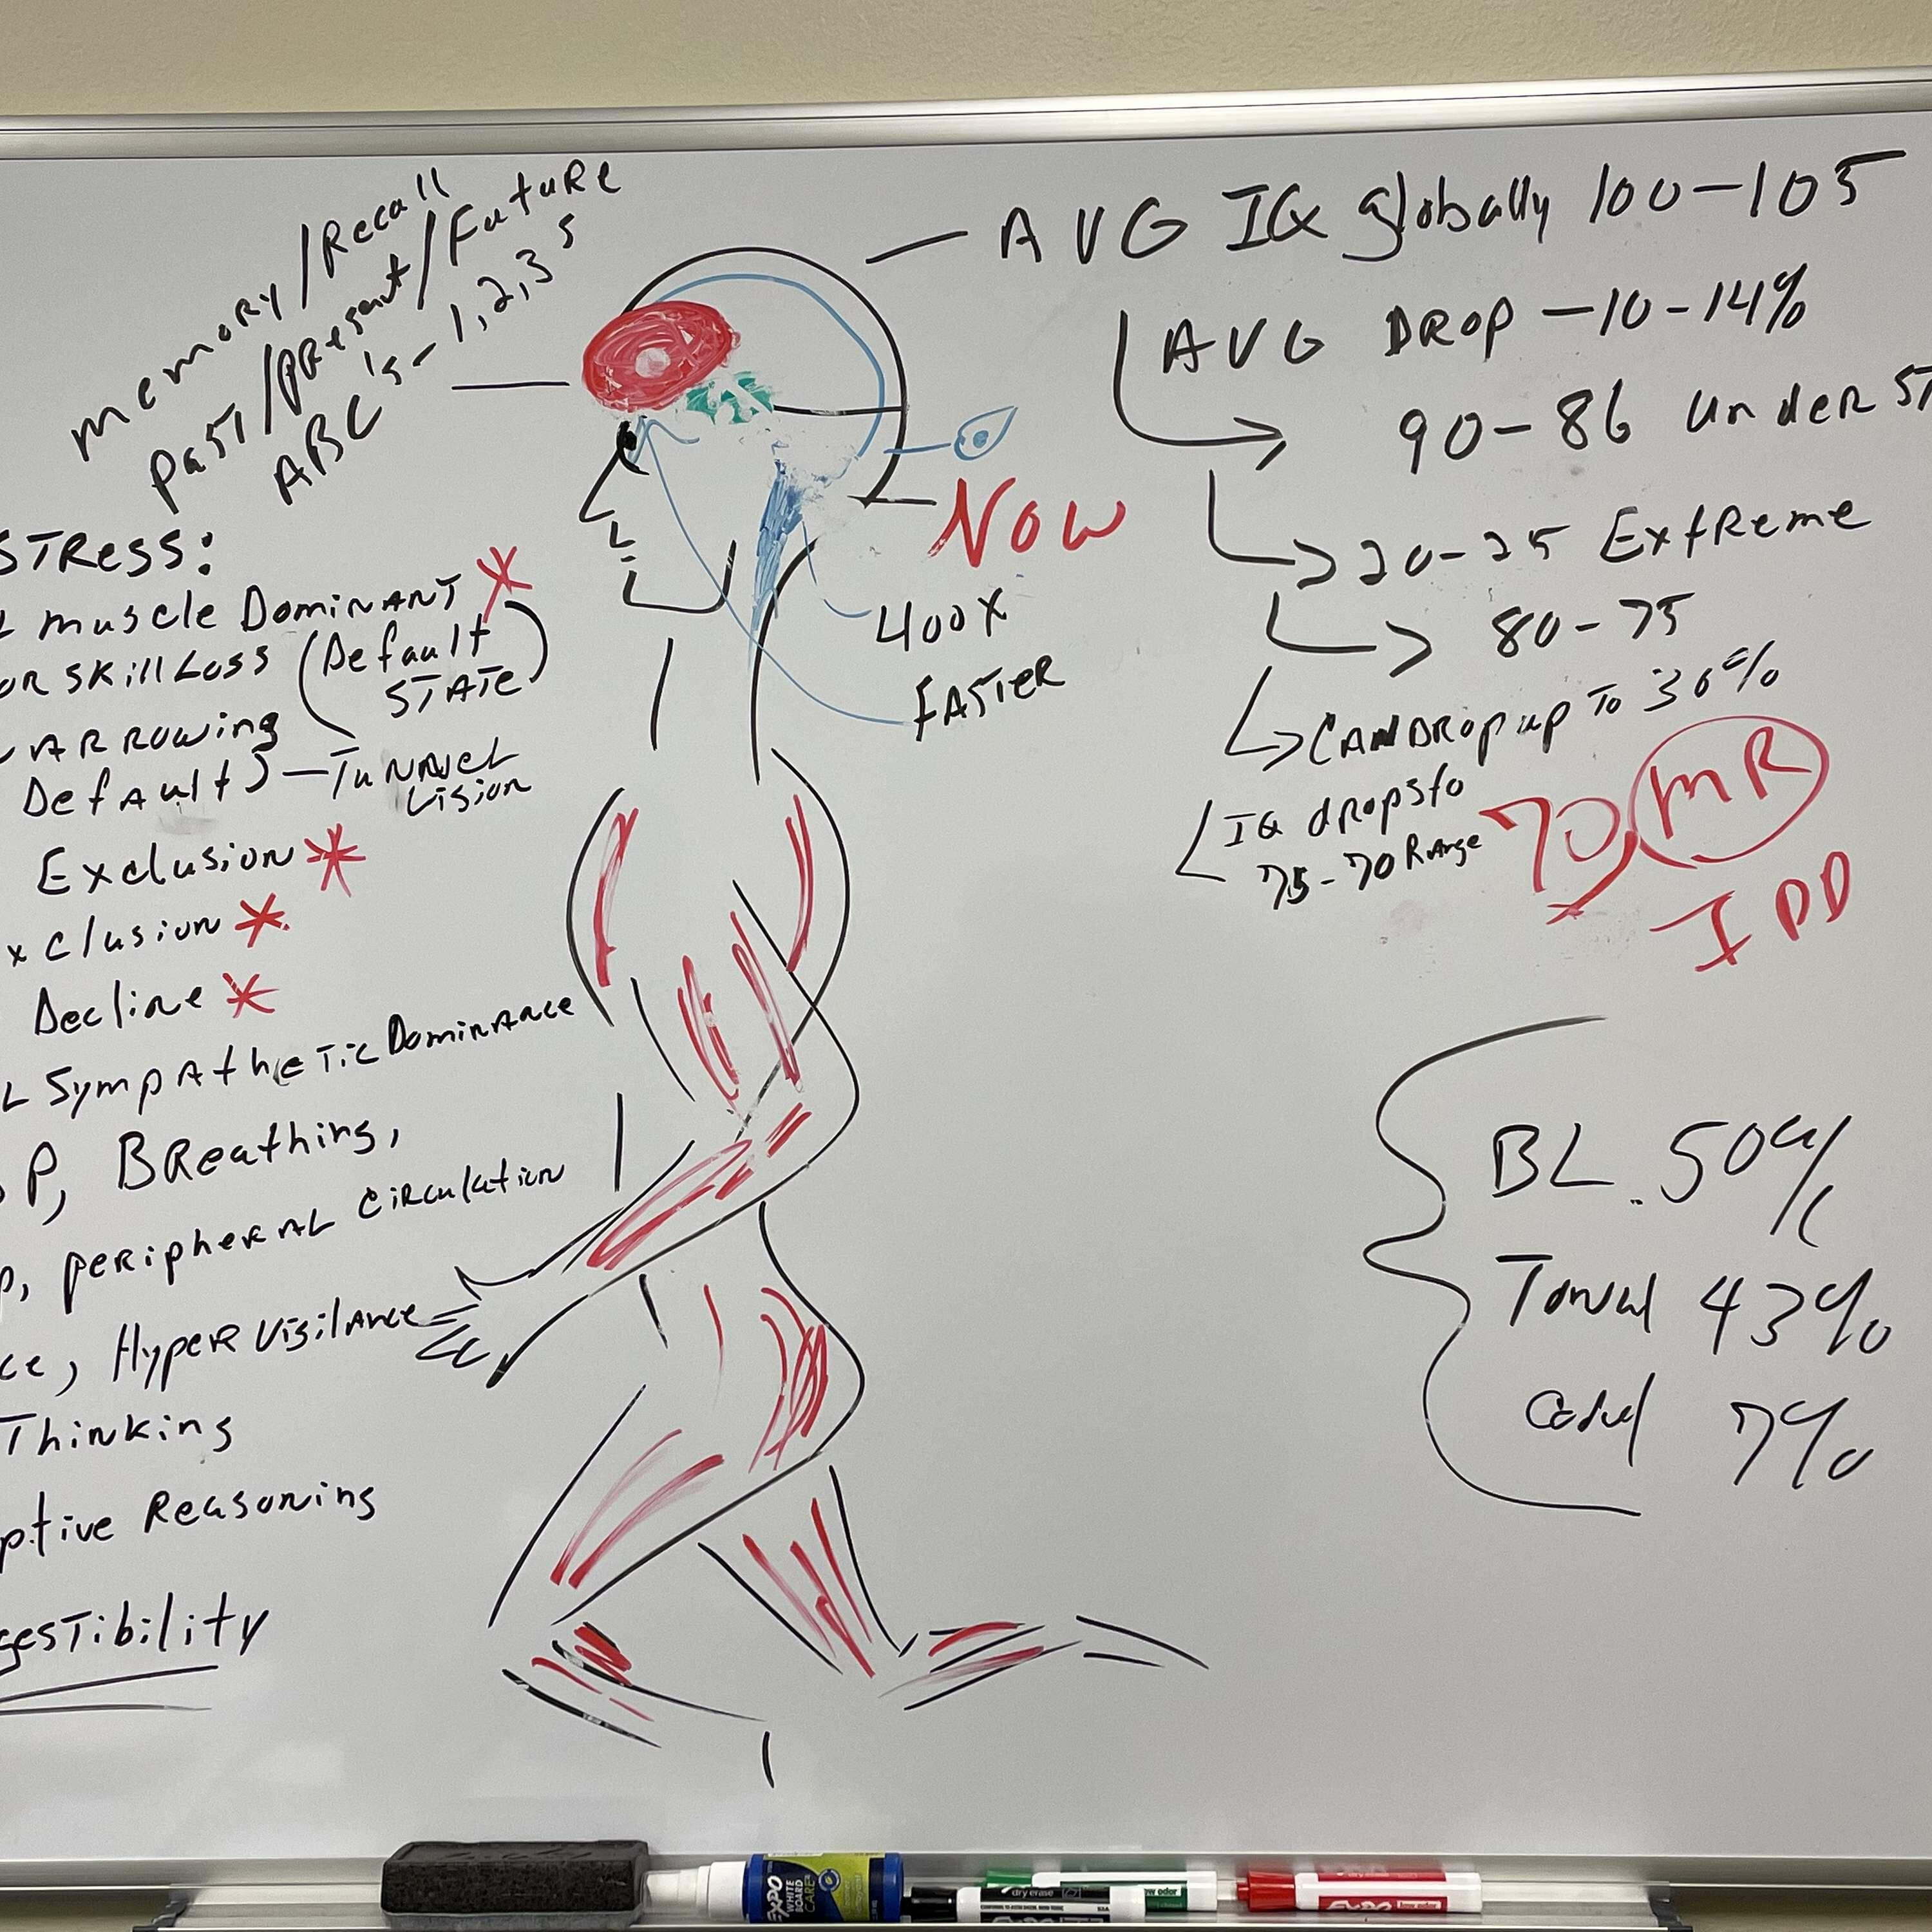 memory/Recall
past/present/Future
ABC's - 1,2,3s
STRess:
L muscle Dominant
OR skill Loss (Default
STATE)
ARRowing
Default) - Tunnel
Vision
Exclusion
xclusion
Decline
L Sympathetic Dominance
P, BReathing,
, peripheral ciRculation
ce, Hyper Vigilance
Thinking
ptive Reasoning
gestibility
AVG IQ globally 100-105
AVG DROP -10-14%
90-86 under ST
20-25 Extreme
80-75
CAN DROp up To 30%
IQ drops to
75-70 Range
70
MR
IDD
Now
400x
FASTER
BL. 50%
Tonal 43%
7%
EXPO
WHITE
BOARD
CARE
dry erase
low odor
EXPO
low odor